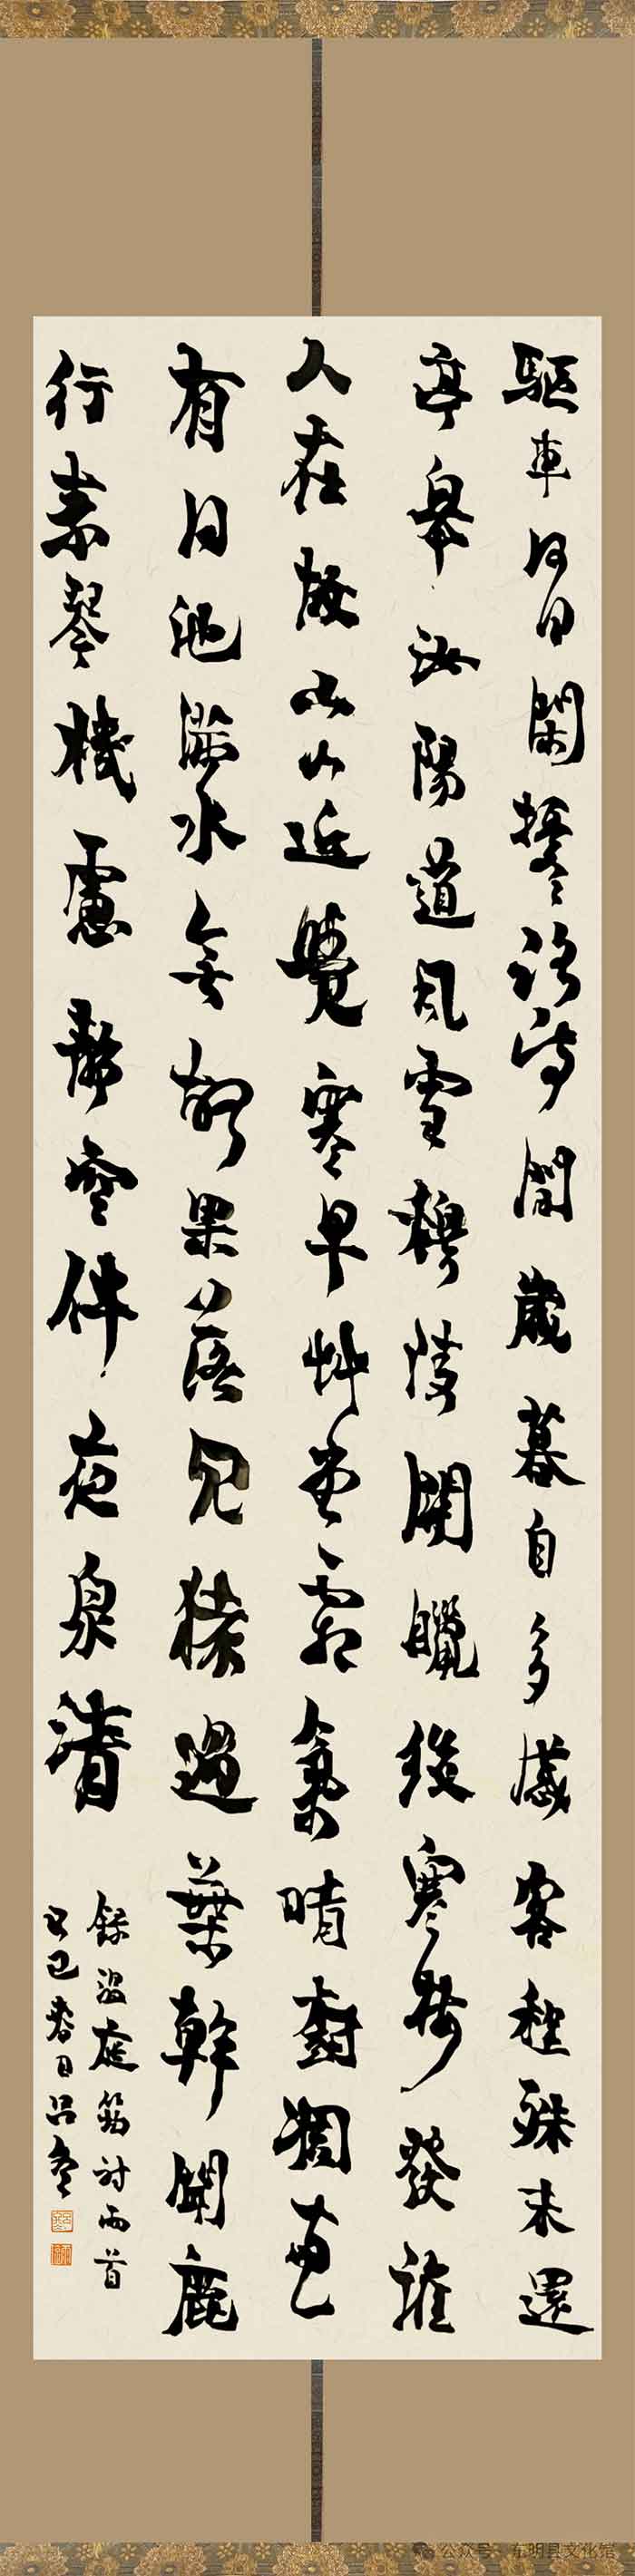 驅車何日閑擾擾路岐間歲暮自多感客程殊未還
亭皋汝陽道風雪穆陵關臘後寒梅發誰
人在故山山近覺寒早艸堂霜氣晴樹凋窗
有日池滿水無聲果落見猿過葉幹聞鹿
行素琴機慮靜空伴夜泉清
錄溫庭筠詩兩首
乙巳春日呂
公众号·东明县文化馆